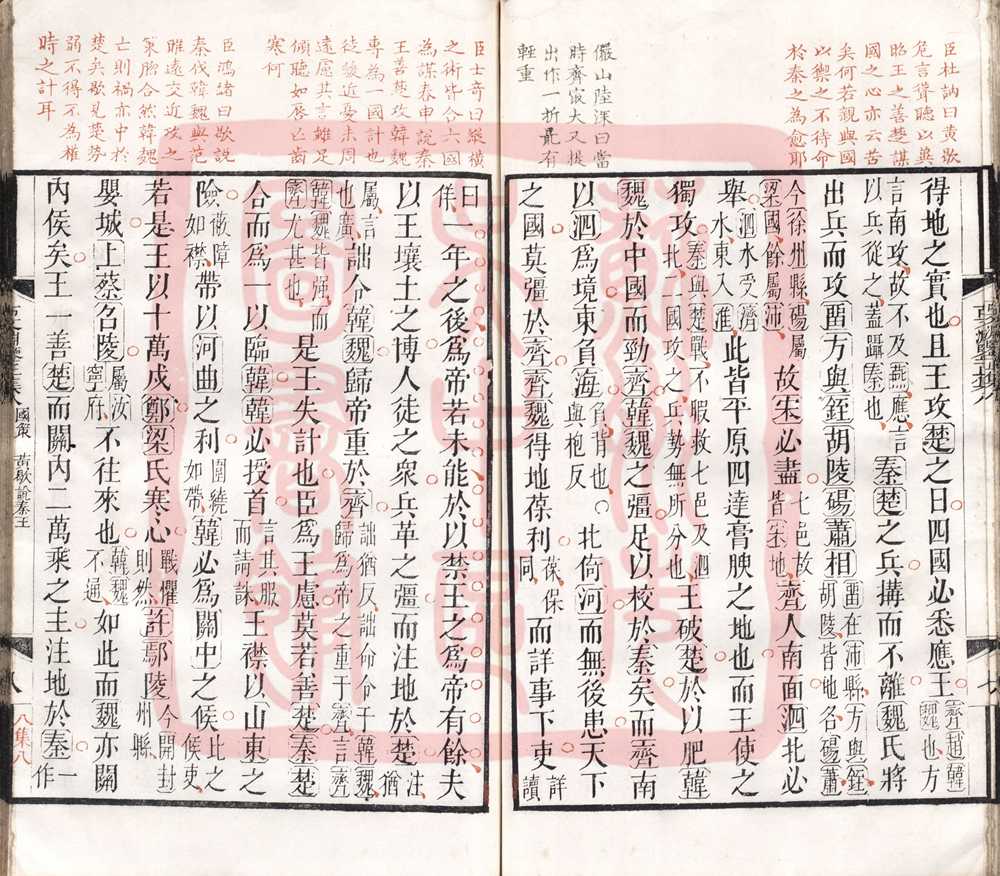 臣杜訥曰黄歇
危言聳聽以冀
昭王之善楚謀
國之心亦云苦
矣何若親與國
以禦之不待命
於秦之為愈耶
儼山陸深曰當
時齊宬大又提
出作一折最有
輕重
得地之實也且王攻楚之日四國必悉應王齊趙韓魏也方
言南攻故不及燕應言以兵從之蓋躡秦也秦楚之兵搆而不離魏氏將
出兵而攻酉方與銍胡陵碭蕭相酉在沛縣方與銍胡陵皆地名碭蕭
今徐州縣碭屬梁國餘屬沛故宋必盡七邑故皆宋地齊人南面泗北必
舉泗水受濟水東入淮此皆平原四達膏腴之地也而王使之
獨攻秦與楚戰不暇救七邑及泗北一國攻之兵勢無所分也王破楚於以肥韓
魏於中國而勁齊韓魏之彊足以校於秦矣而齊南
以泗為境東負海負背也與抱反北倚河而無後患天下
之國莫彊於齊齊魏得地葆利葆保同而詳事下吏詳讀
臣士奇曰縱横
之術皆合六國
為謀春申說秦
王善楚攻韓魏
專為一國計也
徒駿近憂未周
遠慮其言雖足
傾聽如唇亡齒
寒何
臣鴻諸曰歇說
秦伐韓魏與范
雎遠交近攻之
策脗合然韓魏
亡則禍亦中於
楚矣歇見楚勢
弱不得不為權
時之計耳
曰佯一年之後為帝若未能於以禁王之為帝有餘夫
以王壤土之博人徒之衆兵革之彊而注地於楚注猶
屬言也廣詘令韓魏歸帝重於齊詘猶反詘命令于韓魏歸為帝之重于齊言齊
韓魏皆強而齊尤甚也而是王失計也臣為王慮莫若善楚秦楚
合而為一以臨韓韓必授首言其服而請誅王襟以山東之
險被障如襟帶以河曲之利圍繞如帶韓必為關中之侯比之侯吏
若是王以十萬戍鄭梁氏寒心戰懼則然許鄢陵今開封州縣
嬰城上蔡召陵屬汝寧府不往來也韓魏不通如此而魏亦關
內侯矣王一善楚而關內二萬乘之主注地於秦一作
國策
黃歇說秦王
八
八集八